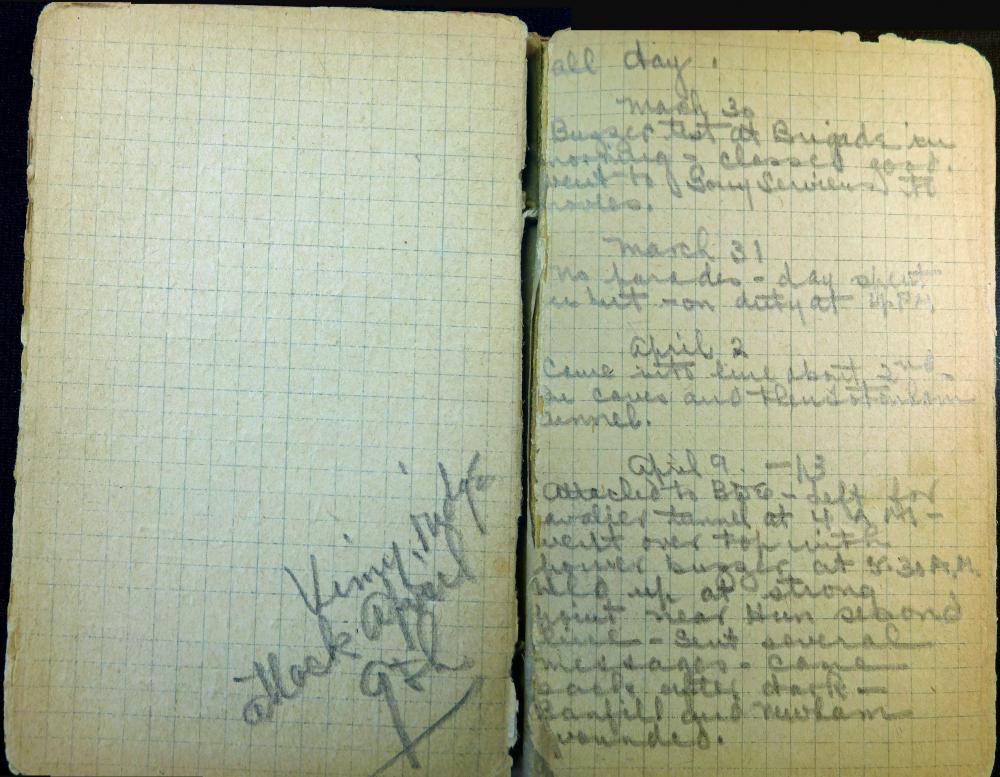 Vimy Ridge
attack April
9th
all day.
March 30
Buzzer test at Brigade in
morning - classed good.
went to Gouy Serviens to
movies.
March 31
No parades - day spent
in hut - on duty at 4 P.M.
April 2
Came into line about 2nd
in caves and then
tunnel.
April 9. - 13
Attached to BDE - left for
cavalier tunnel at 4 A.M. -
went over top with
power buzzer at 5.30 A.M.
held up at strong
point near Hun second
line - Sent several
messages - came
back after dark -
Banfill and Newham
wounded.